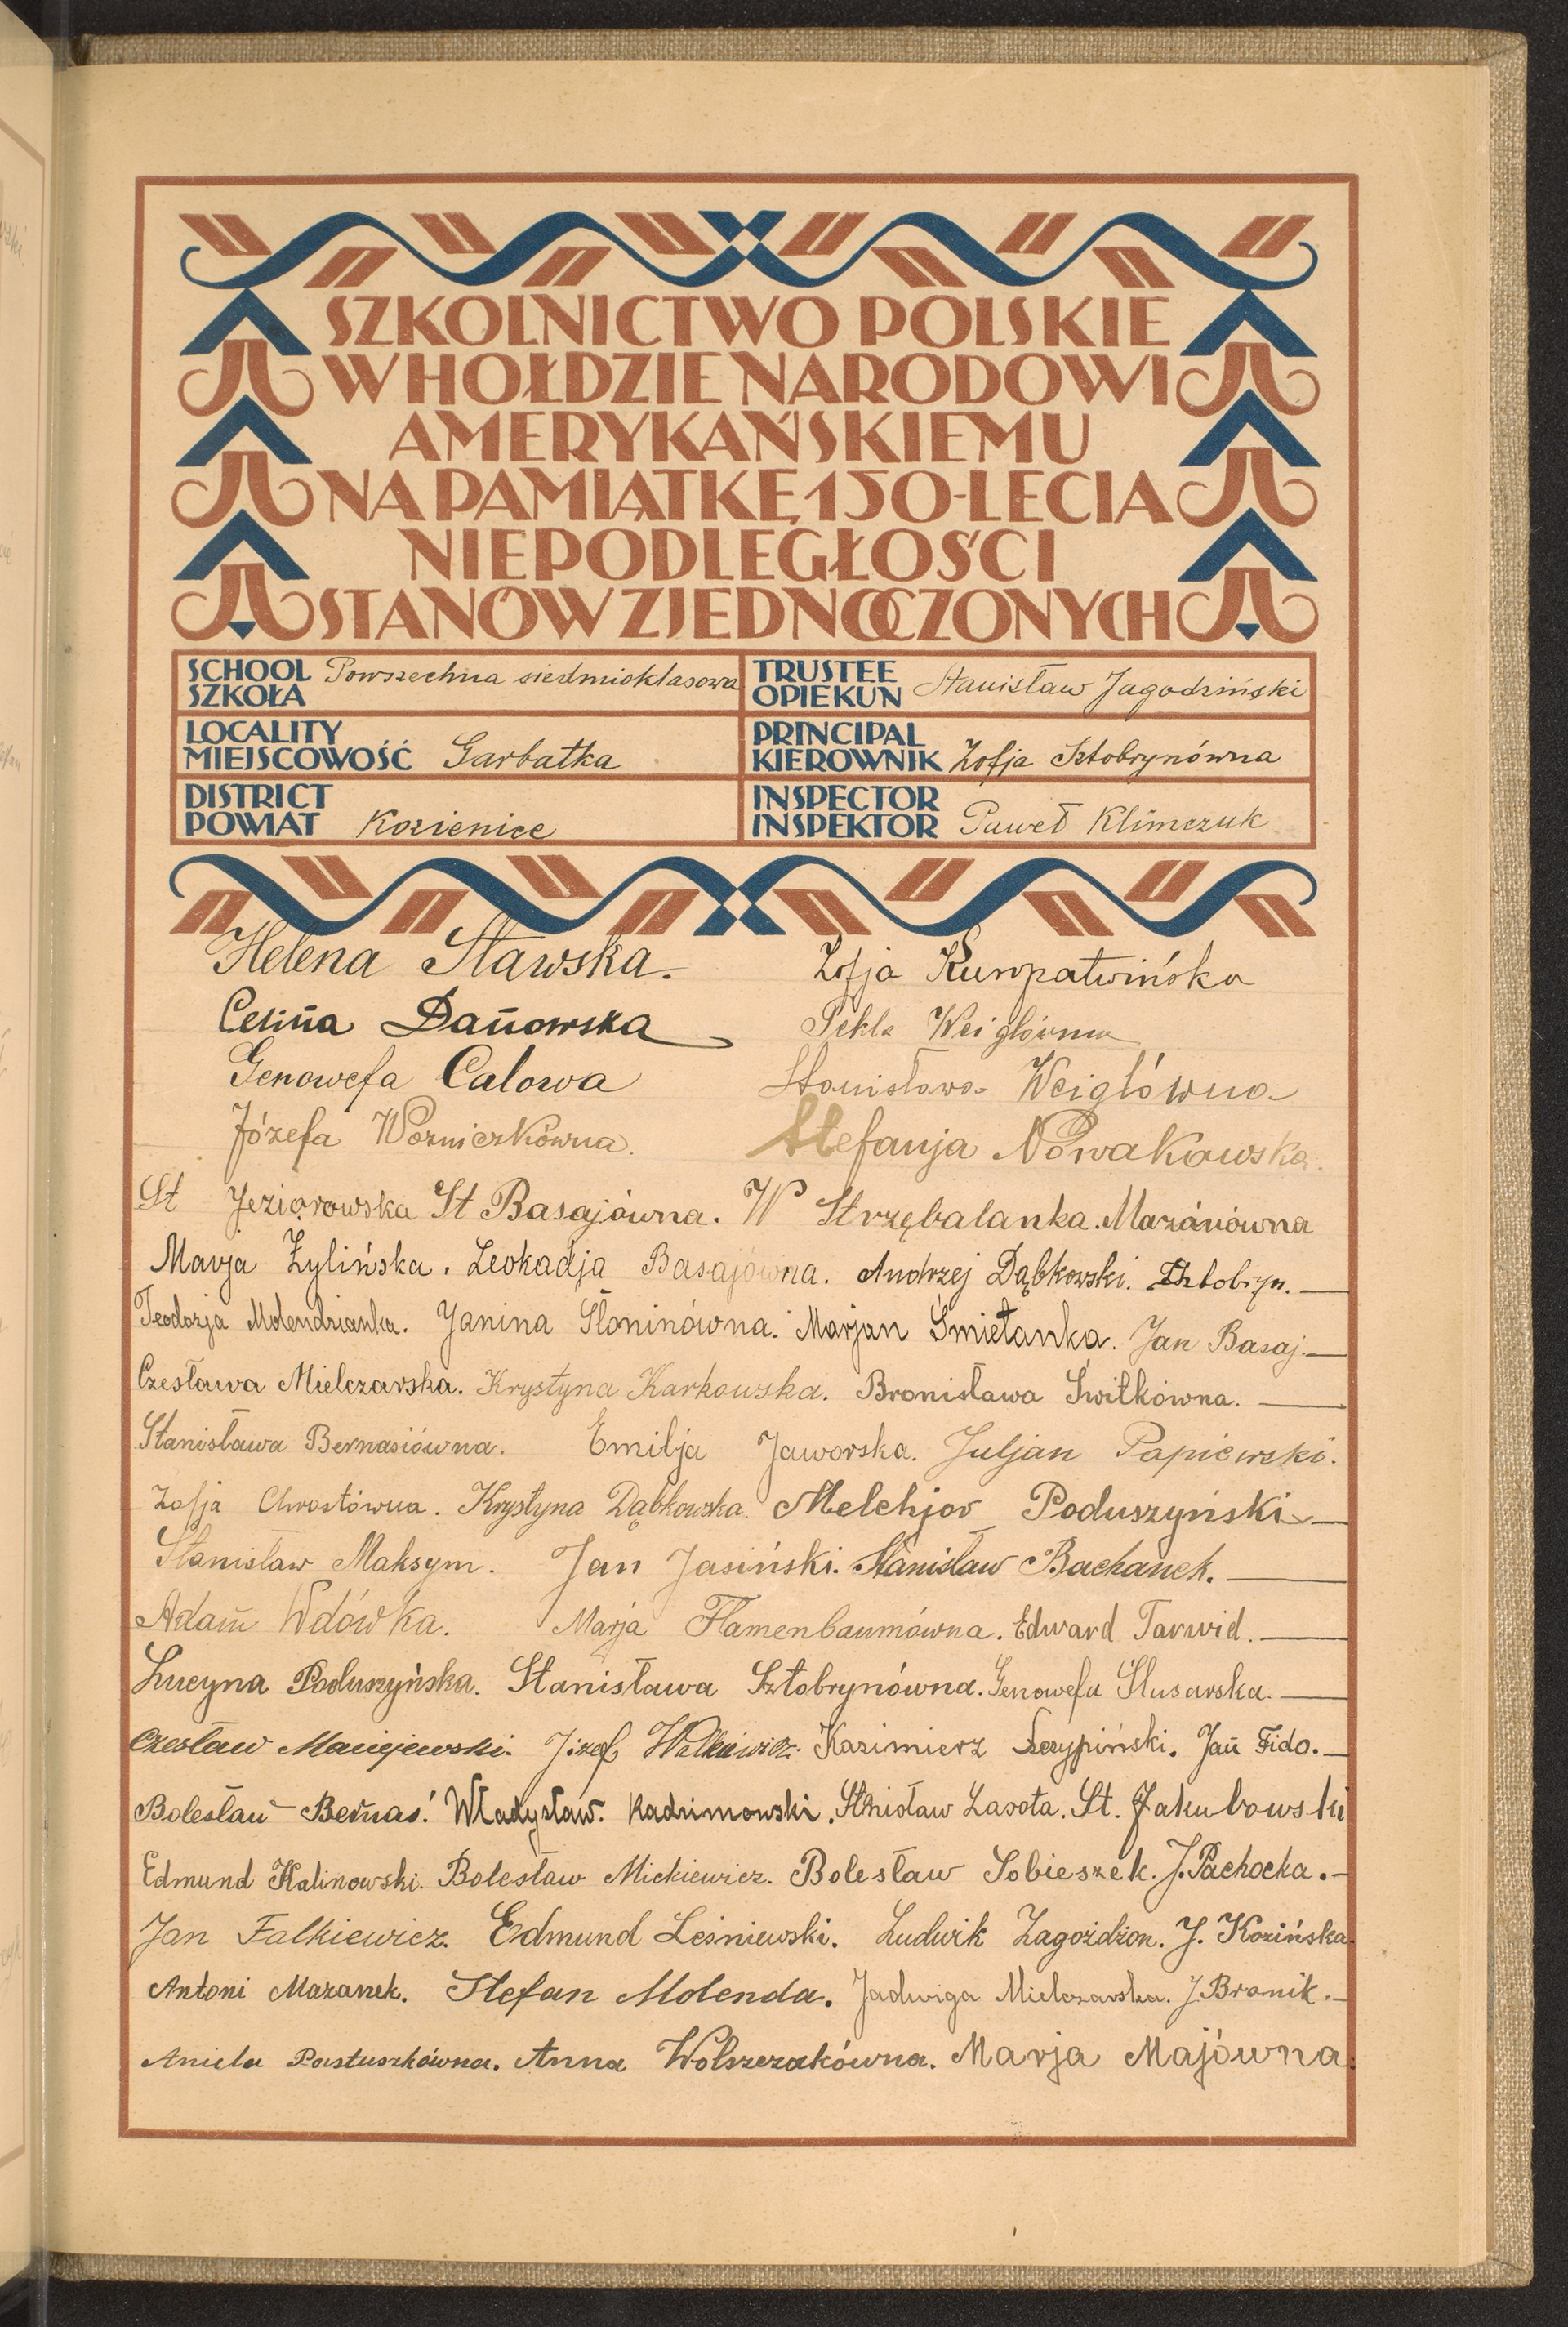 SZKOLNICTWO POLSKIE
W HOŁDZIE NARODOWI
AMERYKAŃSKIEMU
NA PAMIĄTKĘ 150-LECIA
NIEPODLEGŁOŚCI
STANÓW ZJEDNOCZONYCH
SCHOOL SZKOŁA Powszechna siedmioklasowa TRUSTEE OPIEKUN Stanisław Jagodziński
LOCALITY MIEJSCOWOŚĆ Garbatka PRINCIPAL KIEROWNIK Zofja Sztobrynówna
DISTRICT POWIAT Kozienice INSPECTOR INSPEKTOR Paweł Klimczuk
Helena Stawska. Zofja Kuropatwińska
Celina Danowska Tekla Weiglówna
Genowefa Calowa Stanisława Weiglówna
Józefa Wozniczkówna. Stefanja Nowakowska.
St Jeziorowska St Basajówna. W Strzębalanka. Mazánówna
Marja Żylińska. Leokadja Basajówna. Andrzej Dąbkowski. Sztobryn.
Teodozja Molendzianka. Janina Słoninówna. Marjan Śmietanka. Jan Basaj.
Czesława Mielczarska. Krystyna Karkowska. Bronisława Świtkówna.
Stanisława Bernasiówna. Emilja Jaworska. Juljan Papiewski.
Zofja Chrostówna. Krystyna Dąbkowska. Melchjor Poduszyński
Stanisław Maksym. Jan Jasiński. Stanisław Bachanek.
Adam Wdówka. Marja Flamenbaumówna. Edward Tarwid.
Lucyna Poduszyńska. Stanisława Sztobrynówna. Genowefa Ślusarska.
Czesław Maciejewski. Józef Walkiewicz. Kazimierz Szczypiński. Jan Fido.
Bolesław Bernaś. Władysław. Kadzimowski. Stanisław Lasota. St. Jakubowski
Edmund Kalinowski. Bolesław Mickiewicz. Bolesław Sobieszek. J. Pachocka.
Jan Falkiewicz. Edmund Leśniewski. Ludwik Zagożdżon. J. Kozińska.
Antoni Mazanek. Stefan Molenda. Jadwiga Mielczarska. J. Bronik.
Aniela Pastuszkówna. Anna Wolszczakówna. Marja Majówna.